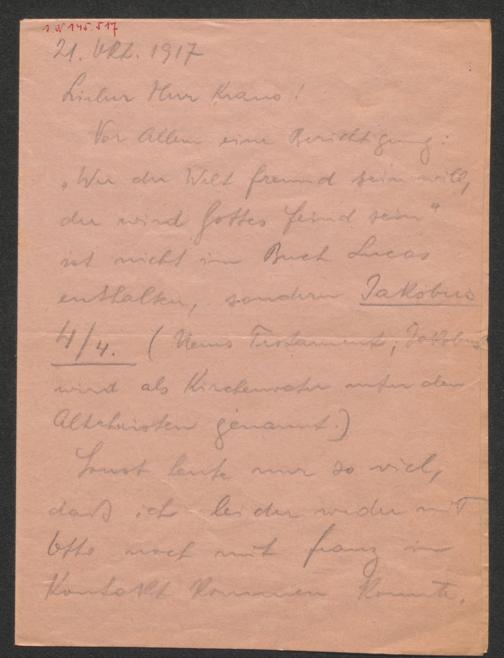 I.N. 145.517
21. Okt. 1917
Lieber Herr Kraus!
Vor Allem eine Berichtigung:
„Wer der Welt freund sein will,
der wird Gottes feind sein“
ist nicht im Buch Lucas
enthalten, sondern Jakobus
4/4. (Neues Testament; Jakobus
wird als Kirchenvater unter den
Altchristen genannt.)
Sonst heute nur so viel,
daß ich leider weder mit
Otto noch mit franz in
Kontakt kommen konnte.